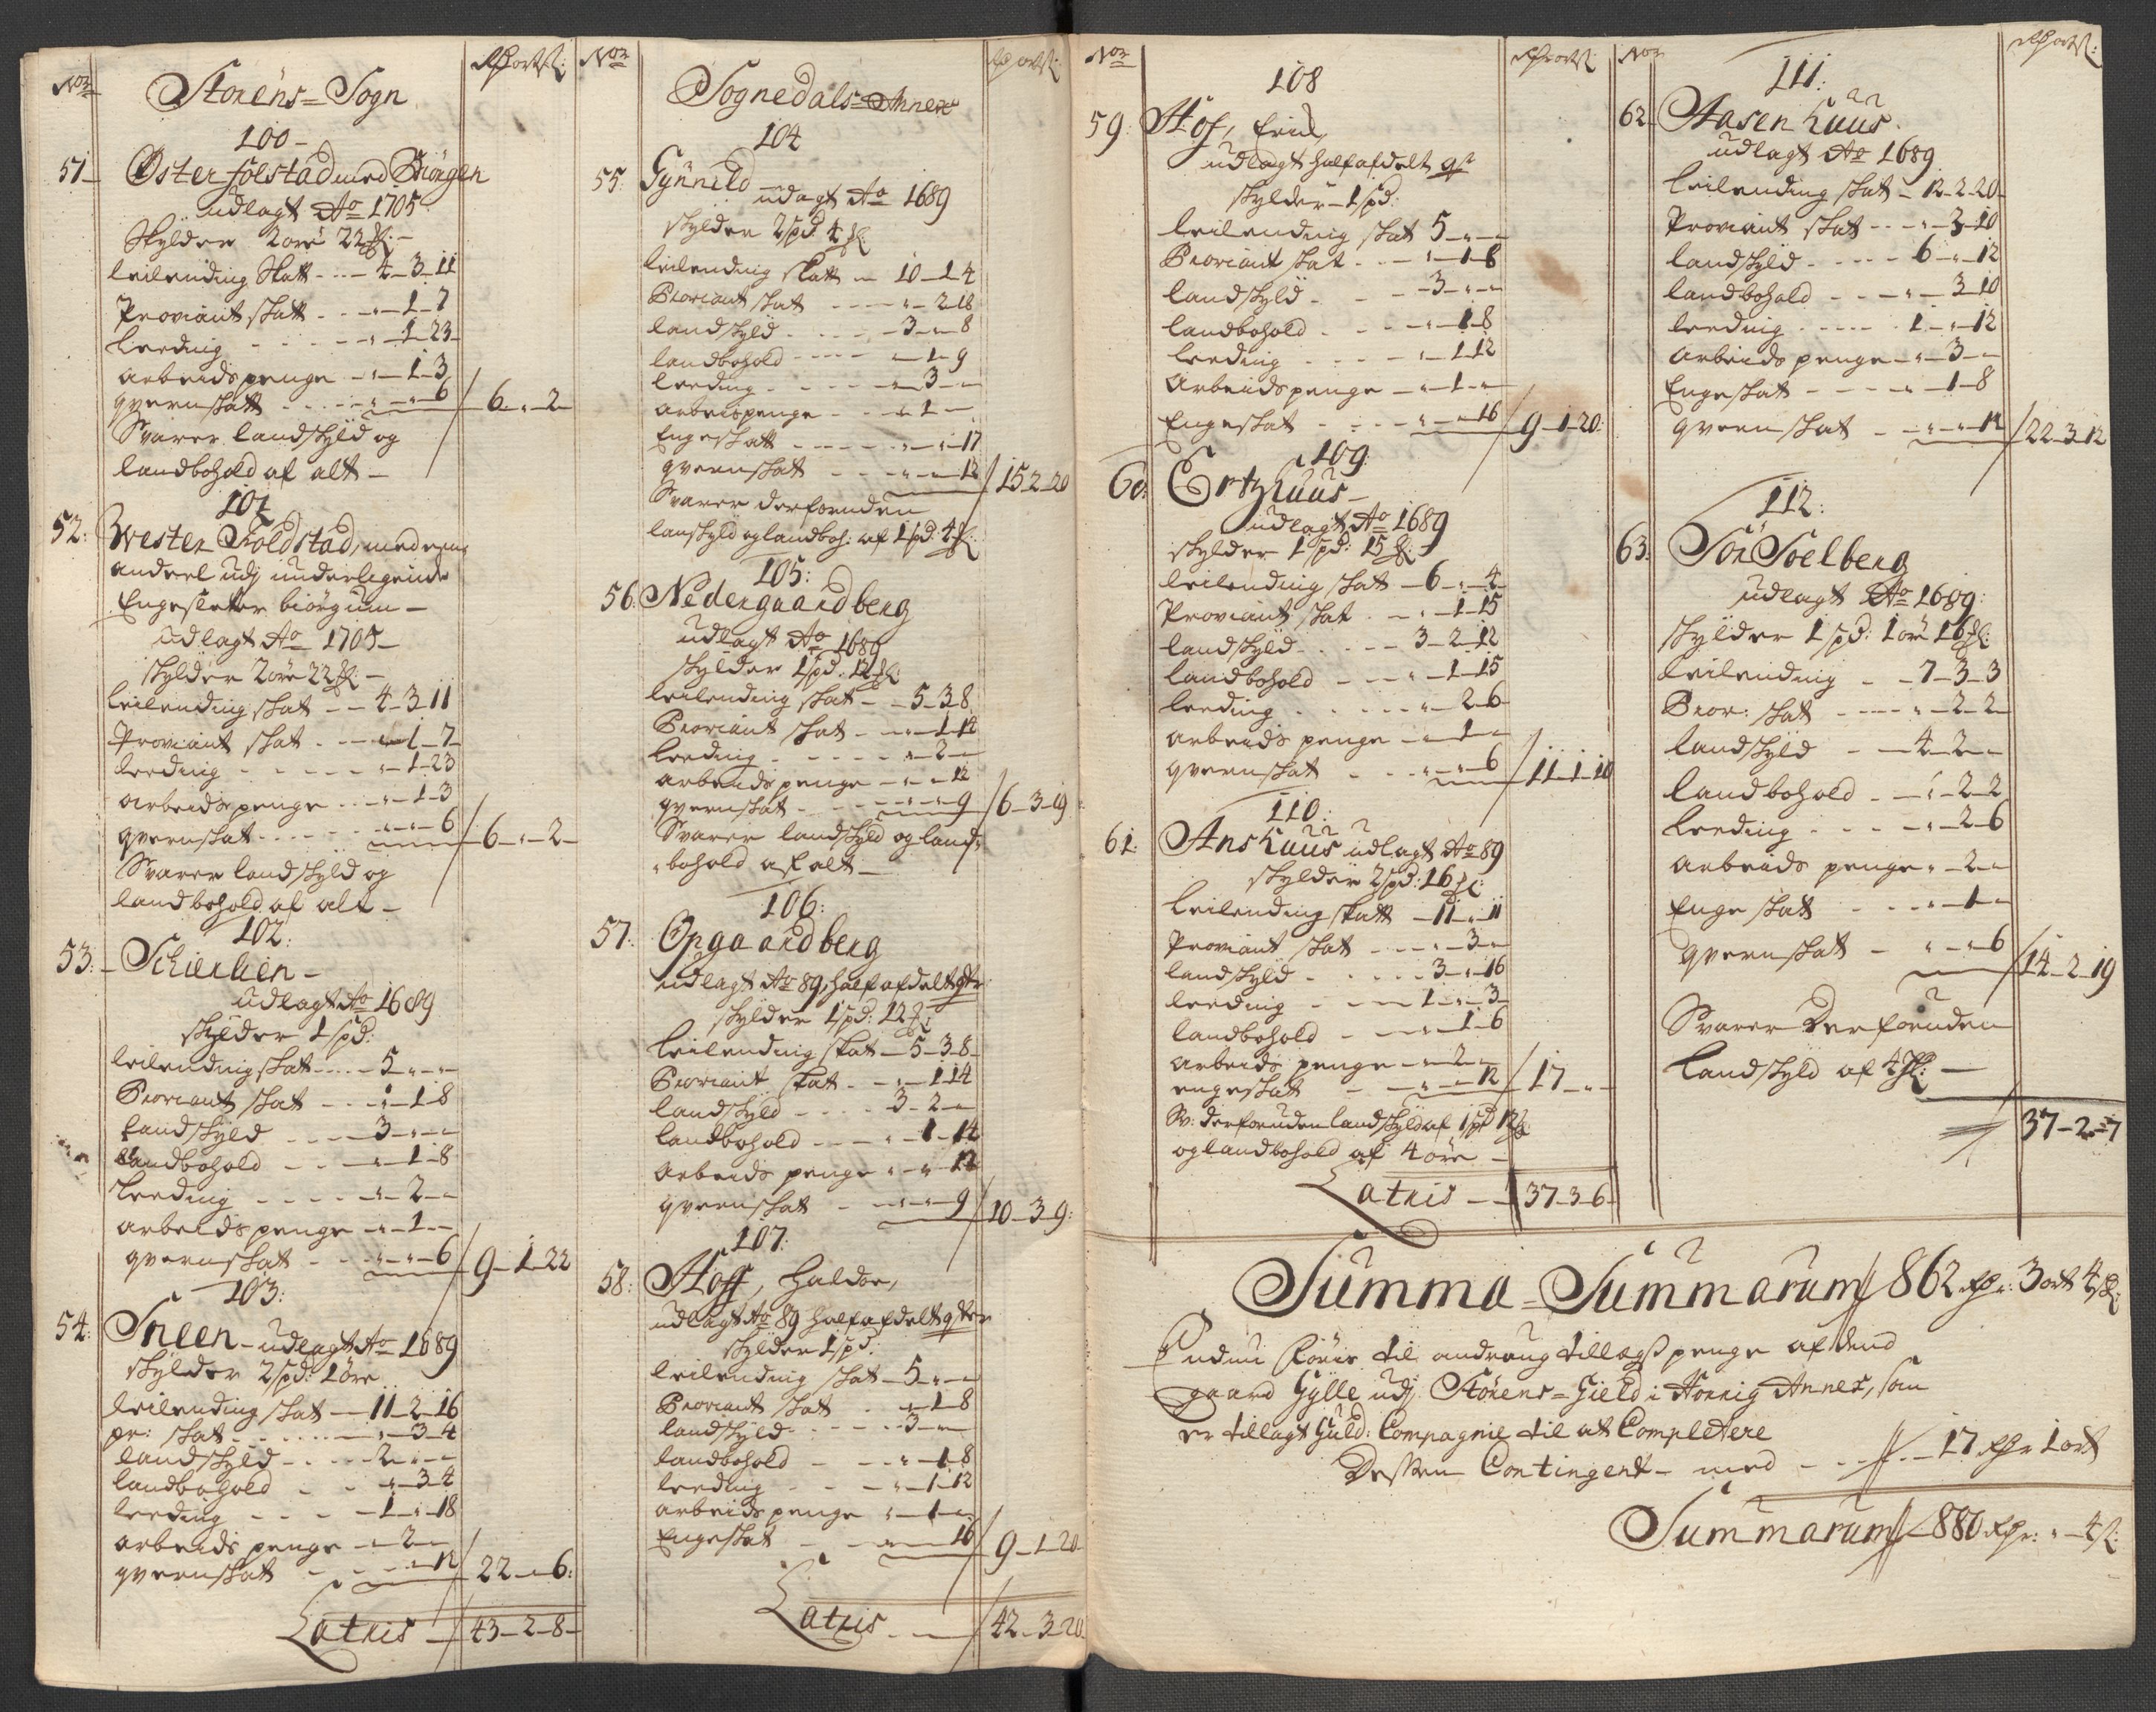 No
Rdr ort ß:
Størens=Sogn
100-
51- Øster folstad med Biörgen
udlagt Ao 1705
Skylder 2 øre 22 ß:-
leilending Skatt - - - 4-3-11
Proviant skatt - - - „-1-7
leeding - - - - - „-1-23-
arbeids penge - „-1-3
qvernskatt - - - - „-„-6 / 6-„-2-
Svarer landskyld og
landbohold af alt -
101
52: Wester Foldstad, med een
andeel udj underligende
Engesletter biörgum -
udlagt Ao 1705-
skylder 2 øre 22 ß:-
leilending skat - - 4-3-11
Proviant skat - - - „-1-7-
leeding - - - - - „-1-23
arbeids penge - - - „-1-3
qvernskat - - - - „-„-6 / 6-„-2-
Svarer landskyld og
landbohold af alt -
102:
53:- Schierlien -
udlagt Ao 1689
skylder 1 spd:
leilending skat - - - 5-„-„
Proviant skat - - - „-1-8
Landskyld - - - 3-„-„
Landbohold - - - „-1-8
Leeding - - - - „-2-„
arbeids penge - „-1-„
qvernskat - - „-„-6 / 9-1-22
103:
54: Sneen - udlagt Ao 1689
skylder 2 spd: 1 øre
leilending skat - 11-2-16
pr: skat - - - - „-3-4
landskyld - - - 2-„-„
landbohold - - „-3-4
leeding - - - 1-„-18
arbeids penge - „-2-„
qvernskat - - - „-12 / 22-„-6:
Latris - / 43-2-8-
No
Rdr ort ß:
Sognedals=Annex
104
55: Gynnild - udagt Ao 1689
skylder 2 spd 4 ß:
leilending skatt - 10-1-4
Proviant skat - - - „-2-18
landskyld - - - - 3-„-8
landbohold - - - - „-1-9
leeding - - - - - „-3-„
arbeispenge - - - „-1-
Engeskatt - - - - „-„-17
qvernskat - - - - „-„-12 / 15-2-20
Svarer derforuden
lanskyld og landboh: af 1 spd: 4 ß:
105:
56: Nedergaardberg
udlagt Ao 1689
skylder 1 spd: 12 ß:
leilending skat - - 5-3-8
Proviant skat - - „-1-14
leeding - - - - - „-2-„
arbeids penge - „-„-12
qvernskat - - - „-„-9 / 6-3-19
Svarer landskyld og land-
bohold af alt -
106:
57: Opgaardberg
udlagt Ao 89, half afdelt qtr
skylder 1 spd: 12 ß:
leilending skat - 5-3-8-
Proviant skat - - „-1-14
landskyld - - - - 3-2-„
landbohold - - - „-1-14
arbeids penge „-„-12
qvernskat - - „-„-9 / 10-3-9:
107:
58: Hoff, Haldor,
udlagt Ao 89 half afdelt qter
skylder 1 spd:
leilending skat - 5-„-„
Proviant skat - „-1-8
landskyld - - - - 3-„-„
landbohold - - - „-1-8
leeding - - - „-1-12
arbeids penge „-1-„
Engeskat - - „-„-16 / 9-1-20
Latris - - / 42-3-20
No
Rdr ort ß:
108
59: Hof, Erich
udlagt half afdelt qr
skylder - 1 spd:
leilending skat 5-„-„
Proviant skat - - - „-1-8
landskyld - - - 3-„-„
landbohold - - - - „-1-8
leeding - - - - „-1-12
arbeids penge - „-1-„
Engeskat - - - - „-„-16 / 9-1-20
109:
60: Ertzhuus -
udlagt Ao 1689
skylder 1 spd: 15 ß:-
leilending skat - 6-„-4-
Proviant skat - - „-1-15
landskyld - - - - 3-2-12
landbohold - - - „-1-15
leeding - - - - - „-2-6
arbeids penge - „-1-„
qvernskat - - - „-„-6 / 11-1-10
110:
61: Anshuus udlagt Ao 89
skylder 2 spd: 16 ß:
leilending skatt - 11-„-11
Proviant skat - - „-3-„
landskyld - - - - 3-„-16
leeding - - - 1-„-3-
landbohold - - - „-1-6
arbeids penge - „-2-„
engeskat - - „-„-12 / 17-„-
Sv: derforuden landskyld af 1 spd 12 ß
og landbohold af 4 øre -
Latris - / 37-3-6-
No
Rdr ort ß:
111:
62: Aasenhuus
udlagt Ao 1689
leilending skat - 12-2-20-
Proviant skat - - - „-3-10
landskyld - - - - 6-„-12
landbohold - - - „-3-10
leeding - - - - 1-„-12
arbeids penge - „-3-„
Engeskat - - - „-1-8
qvernskat - - „-„-12 / 22-3-12
112:
63: Sör Soelberg
udlagt Ao 1689:
skylder 1 spd: 1 øre 16 ß:
leilending - - 7-3-3
Prov: skat - - - „-2-2-
landskyld - - 4-2-„
landbohold - - „-2-2
leeding - - - - „-2-6
arbeids penge „-2-„
Engeskat - - - „-1-„
qvernskat - „-„-6 / 14-2-19
Svarer Derforuden
Landskyld af 4 ß: -
37-2-7
Summa=Summarum // 862 Rdr: 3 ort 4 ß:
Endnu föris til andraug tillegs penge af dend
gaard Gylle udj Störens=Gield i Horrig Annex, som
er tillagt Guld: Compagnie til at Completere
Dessen Contingent - med - - // - 17 Rdr 1 ort
Summarum // - 880 Rdr: „-4 ß: